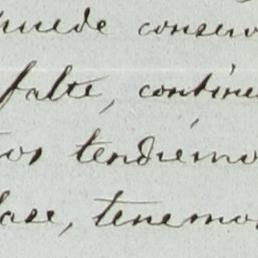 puede conserv
falte, contine
tos tendremo
ase, tenemos